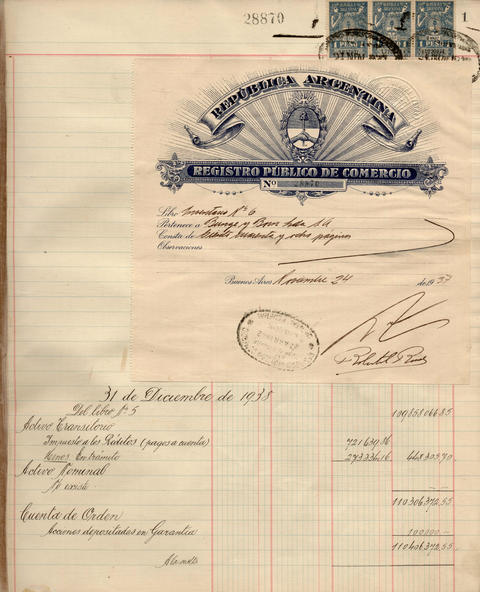 28870
1
1 PESO 1 PESO 1 PESO
REPÚBLICA ARGENTINA
REGISTRO PÚBLICO DE COMERCIO
Nº 28870
Libro Inventario Nº 6
Pertenece a Bunge y Born Ltda SA
Consta de Ciento cuarenta y ocho páginas
Observaciones
Buenos Aires Noviembre 24 de 1937
31 de Diciembre de 1938
Del libro Nº 5 109858066.85
Activo Transitorio
Impuesto a los Réditos (pagos a cuenta) 721639.86
Menos En tránsito 273334.16 448305.70
Activo Nominal
No existe — —
110306372.55
Cuenta de Orden
Acciones depositadas en Garantía 100000.—
110406372.55